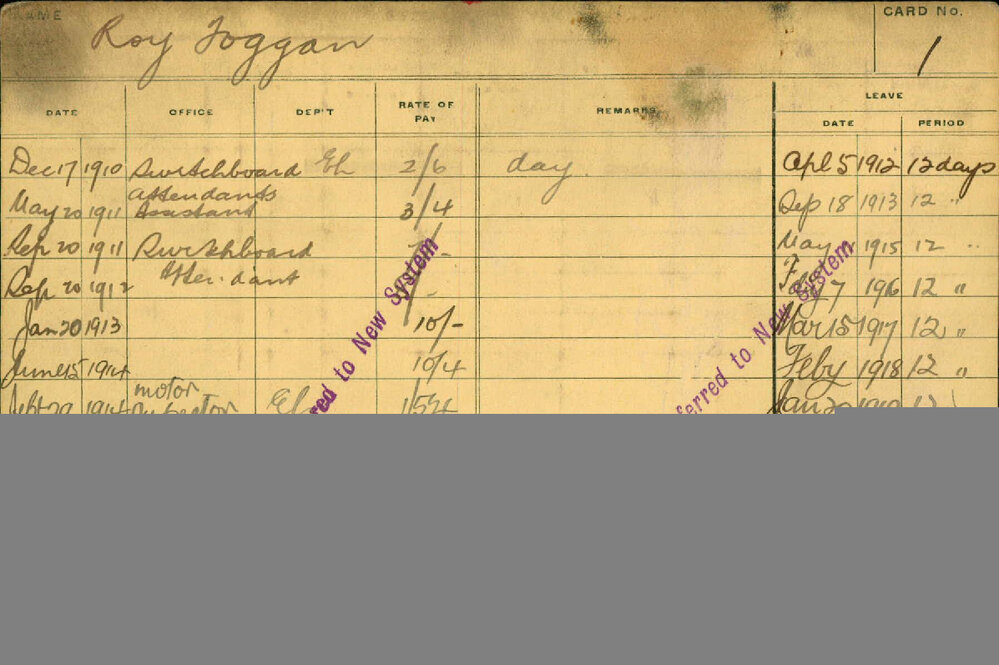 NAME Roy Toggan CARD No. 1
LEAVE
DATE OFFICE DEP'T RATE OF PAY REMARKS DATE PERIOD
Dec 17 1910 Switchboard El 2/6 day Apl 5 1912 12 days
May 20 1911 attendants Assistant 3/4 Sep 18 1913 12 "
Sep 20 1911 Switchboard May 1915 12 "
Sep 20 1912 Atten.dant Feby 7 1916 12 "
Jan 20 1913 10/- Mar 15 1917 12 "
June 15 1914 10/4 Feby 1918 12 "
Sept 20 1914 motor El Jan 12
to New System
to New System